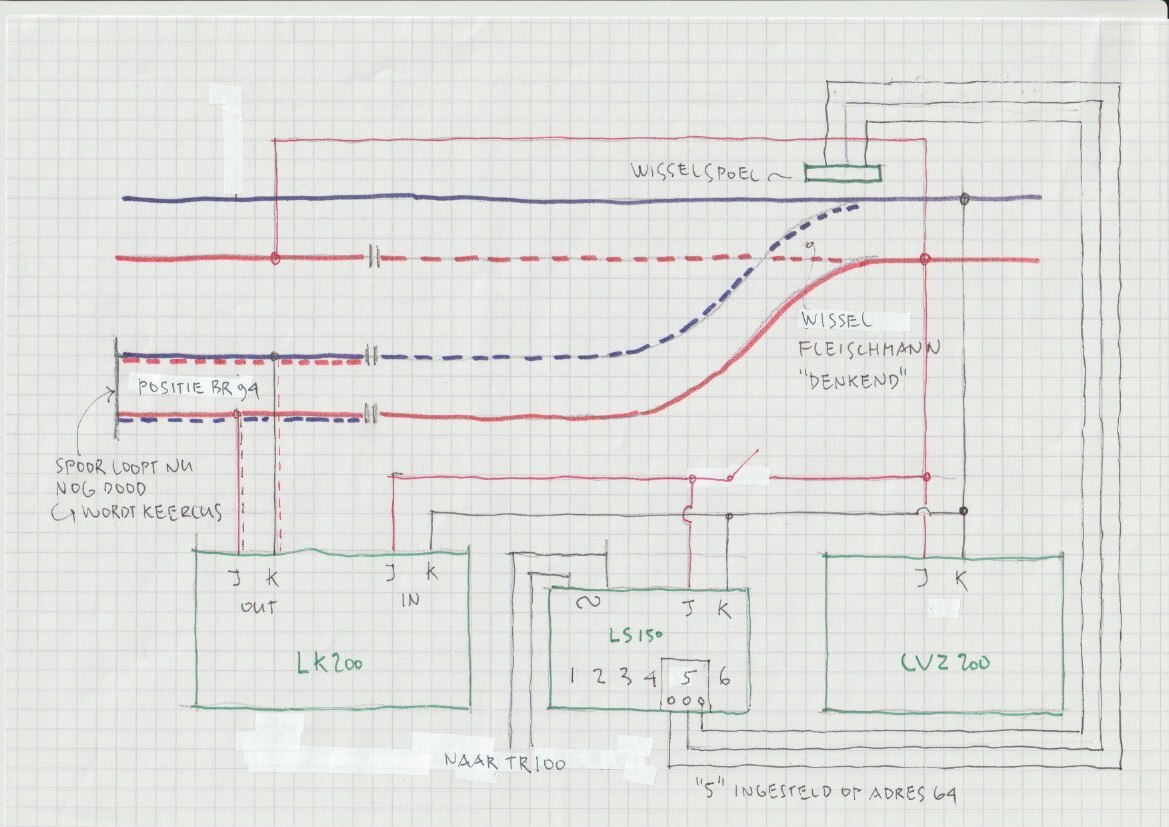 WISSELSPOEL
WISSEL
FLEISCHMANN
"DENKEND"
POSITIE BR 94
SPOOR LOOPT NU
NOG DOOD
WORDT KEERLUS
J K
OUT
J K
IN
LK200
~
J K
LS150
1 2 3 4 5 6
J K
LVZ 200
NAAR TR100
"5" INGESTELD OP ADRES 64